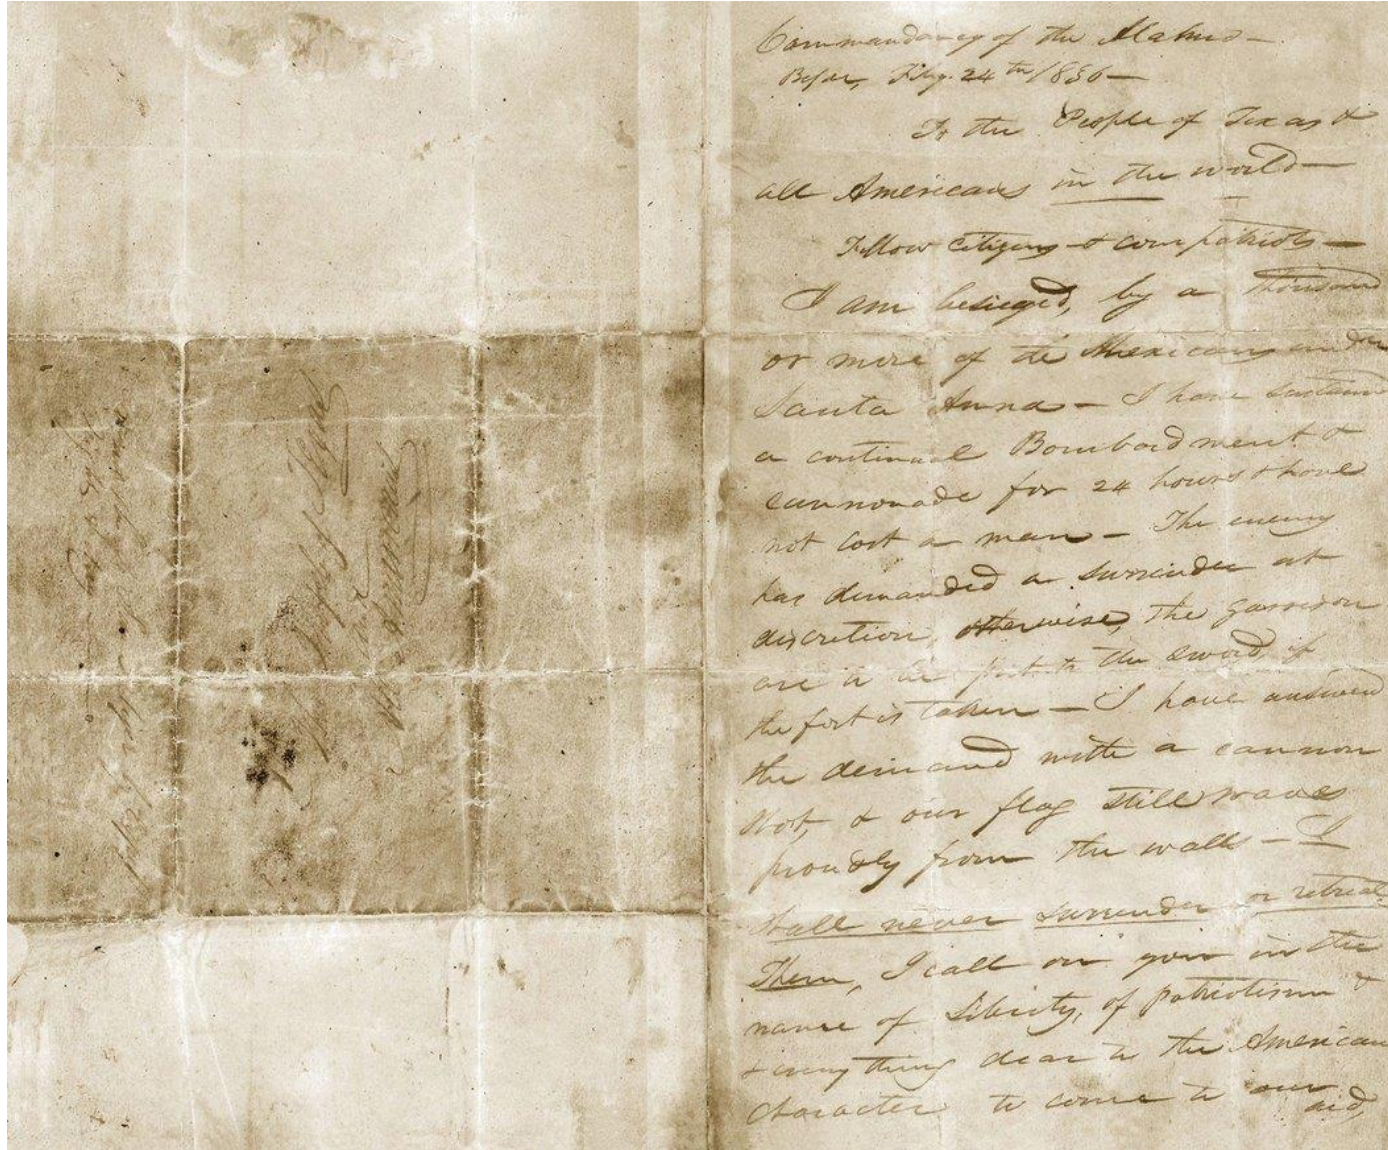 Commandancy of the Alamo—
Bejar, Feby. 24th 1836—
To the People of Texas &
all Americans in the world—
Fellow citizens & compatriots—
I am besieged, by a thousand
or more of the Mexicans under
Santa Anna — I have sustained
a continual Bombardment &
cannonade for 24 hours & have
not lost a man — The enemy
has demanded a surrender at
discretion, otherwise, the garrison
are to be put to the sword, if
the fort is taken — I have answered
the demand with a cannon
shot, & our flag still waves
proudly from the walls — I
shall never surrender or retreat.
Then, I call on you in the
name of Liberty, of patriotism &
& every thing dear to the American
character to come to our
aid,